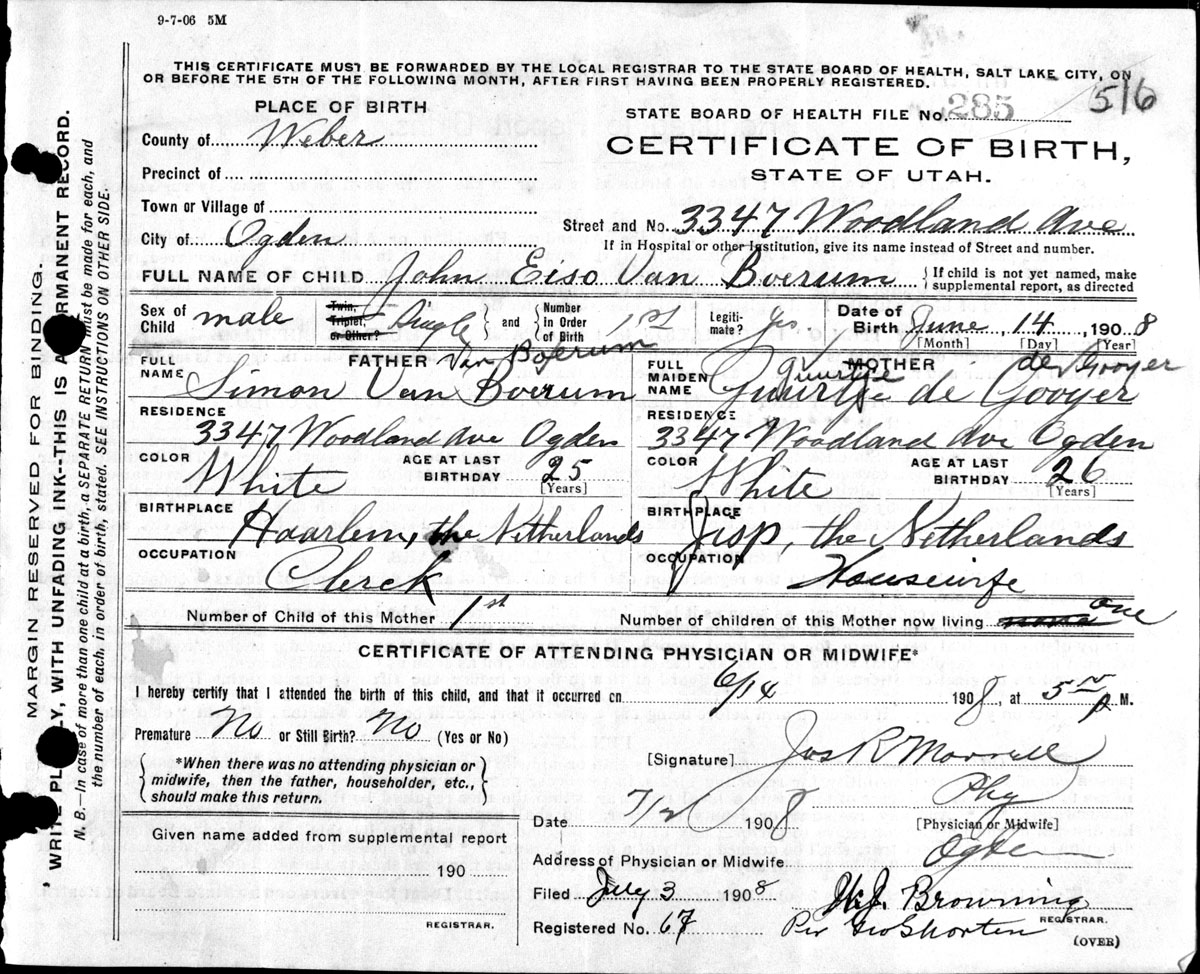 9-7-06 5M
THIS CERTIFICATE MUST BE FORWARDED BY THE LOCAL REGISTRAR TO THE STATE BOARD OF HEALTH, SALT LAKE CITY, ON
OR BEFORE THE 5TH OF THE FOLLOWING MONTH, AFTER FIRST HAVING BEEN PROPERLY REGISTERED.
PLACE OF BIRTH
STATE BOARD OF HEALTH FILE No. 285 516
County of Weber
CERTIFICATE OF BIRTH,
STATE OF UTAH.
Precinct of
Town or Village of
Street and No. 3347 Woodland Ave
City of Ogden
If in Hospital or other Institution, give its name instead of Street and number.
FULL NAME OF CHILD John Eiso Van Boerum {If child is not yet named, make
supplemental report, as directed
Sex of Child male Twin, Triplet, or Other? Single and Number in Order of Birth 1st Legiti-mate? Yes. Date of Birth June 14, 1908
[Month] [Day] [Year]
FATHER Van Boerum
FULL NAME Simon Van Boerum
MOTHER de Gooyer
FULL MAIDEN NAME Guurtje de Gooyer
RESIDENCE 3347 Woodland Ave Ogden
RESIDENCE 3347 Woodland Ave Ogden
COLOR White AGE AT LAST BIRTHDAY 25 [Years]
COLOR White AGE AT LAST BIRTHDAY 26 [Years]
BIRTHPLACE Haarlem, the Netherlands
BIRTHPLACE Jisp, the Netherlands
OCCUPATION Clerck
OCCUPATION Housewife
Number of Child of this Mother 1st Number of children of this Mother now living none one
CERTIFICATE OF ATTENDING PHYSICIAN OR MIDWIFE*
I hereby certify that I attended the birth of this child, and that it occurred on 6/14 1908, at 5 P M.
Premature No or Still Birth? No (Yes or No)
[Signature] Jos R Morrell
*When there was no attending physician or
midwife, then the father, householder, etc.,
should make this return.
Phy
Date 7/2 1908 [Physician or Midwife]
Given name added from supplemental report
Address of Physician or Midwife Ogden
190
Filed July 3 1908 W.J. Browning
REGISTRAR.
REGISTRAR.
Registered No. 67 Per Geo Shorten
(OVER)
MARGIN RESERVED FOR BINDING.
WRITE PLAINLY, WITH UNFADING INK--THIS IS A PERMANENT RECORD.
N. B.—In case of more than one child at a birth, a SEPARATE RETURN must be made for each, and
the number of each, in order of birth, stated. SEE INSTRUCTIONS ON OTHER SIDE.